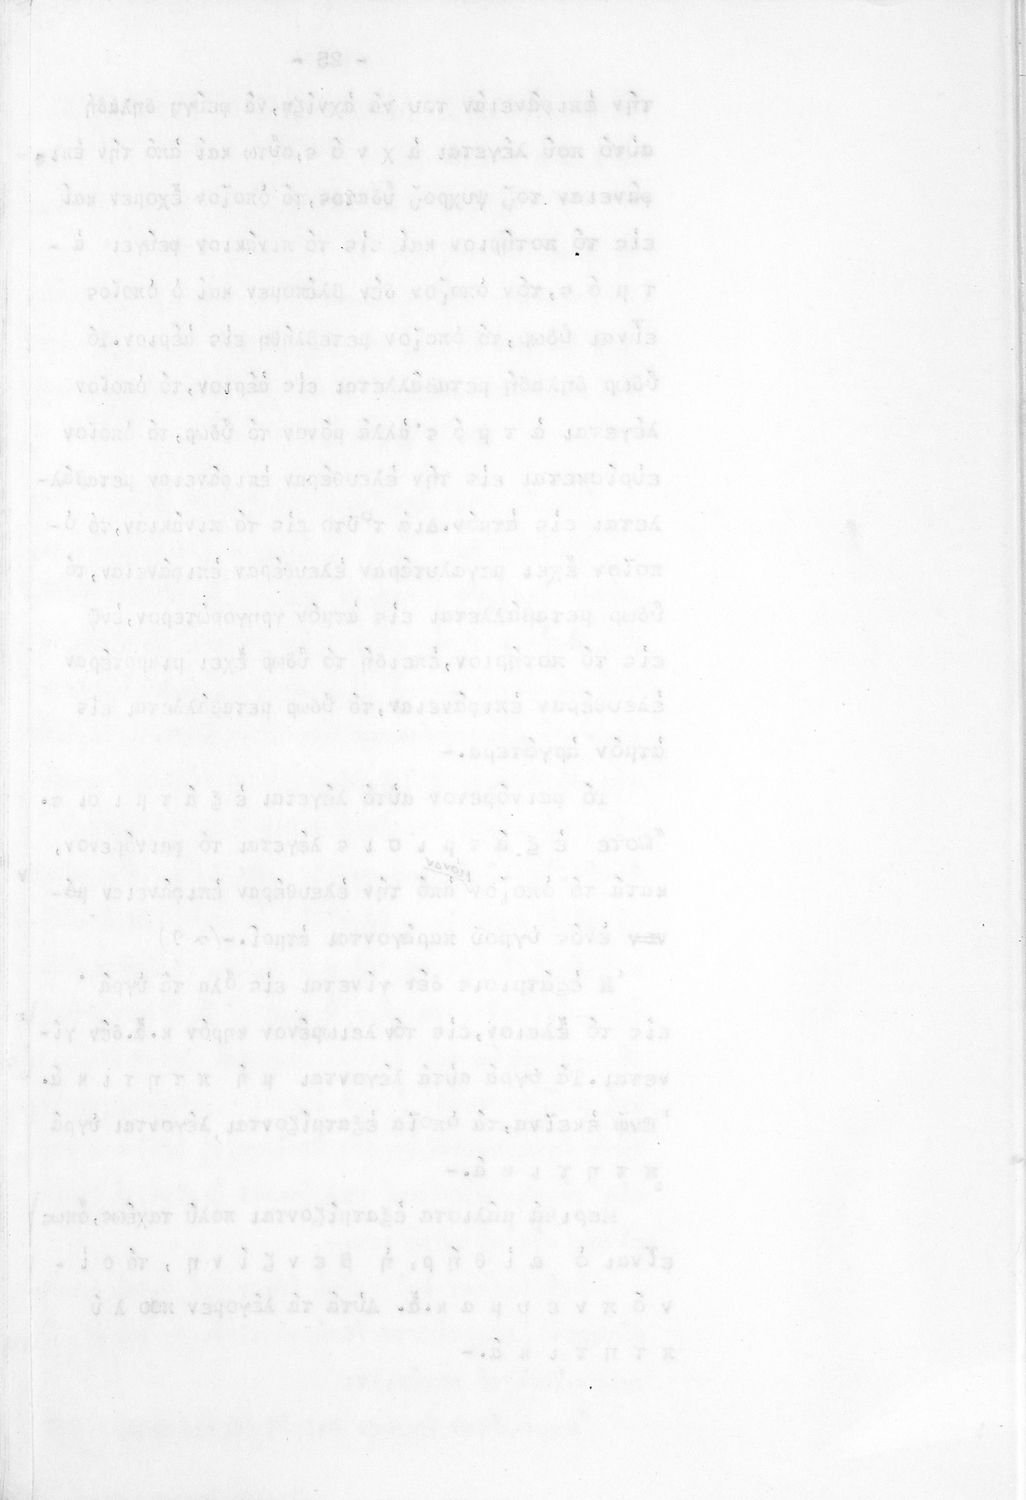 - 25 -
τήν ἐπιφάνειάν του νά ἀχνίζῃ,νά φεύγῃ δηλαδή
αὐτό πού λέγεται ἀ χ ν ό ς,οὕτω καί ἀπό τήν ἐπι-
φάνειαν τοῦ ψυχροῦ ὕδατος,τό ὁποῖον ἔχομεν καί
εἰς τό ποτήριον καί εἰς τό πινάκιον φεύγει ἀ-
τ μ ό ς,τόν ὁποῖον δέν βλέπομεν καί ὁ ὁποῖος
εἶναι ὕδωρ,τό ὁποῖον μετεβλήθη εἰς ἀέριον.Τό
ὕδωρ δηλαδή μεταβάλλεται εἰς ἀέριον,τό ὁποῖον
λέγεται ἀ τ μ ό ς·ἀλλά μόνον τό ὕδωρ,τό ὁποῖον
εὑρίσκεται εἰς τήν ἐλευθέραν ἐπιφάνειαν μεταβάλ-
λεται εἰς ἀτμόν.Διά τοῦτο εἰς τό πινάκιον,τό ὁ-
ποῖον ἔχει μεγαλυτέραν ἐλευθέραν ἐπιφάνειαν,τό
ὕδωρ μεταβάλλεται εἰς ἀτμόν γρηγορώτερον,ἐνῶ
εἰς τό ποτήριον,ἐπειδή τό ὕδωρ ἔχει μικροτέραν
ἐλευθέραν ἐπιφάνειαν,τό ὕδωρ μεταβάλλεται εἰς
ἀτμόν ἀργότερα.-
Τό φαινόμενον αὐτό λέγεται ἐ ξ ά τ μ ι σ ι ς.
Ὥστε ἐ ξ ά τ μ ι σ ι ς λέγεται τό φαινόμενον,
κατά τό ὁποῖον μόνον ἀπό τήν ἐλευθέραν ἐπιφάνειαν μό-
νον ἑνός ὑγροῦ παράγονται ἀτμοί.-
Ἡ ἐξάτμισις δέν γίνεται εἰς ὅλα τά ὑγρά ·
εἰς τό ἔλαιον,εἰς τόν λειωμένον κηρόν κ.ἄ.δέν γί-
νεται.Τά ὑγρά αὐτά λέγονται μ ή π τ η τ ι κ ά.
Ἐνῶ ἐκεῖνα,τά ὁποῖα ἐξατμίζονται,λέγονται ὑγρά
π τ η τ ι κ ά.-
Μερικά μάλιστα ἐξατμίζονται πολύ ταχέως,ὅπως
εἶναι ὁ α ἰ θ ή ρ, ἡ β ε ν ζ ί ν η , τό ο ἰ -
ν ό π ν ε υ μ α κ.ἄ. Αὐτά τά λέγομεν πο λ ύ
π τ η τ ι κ ά.-